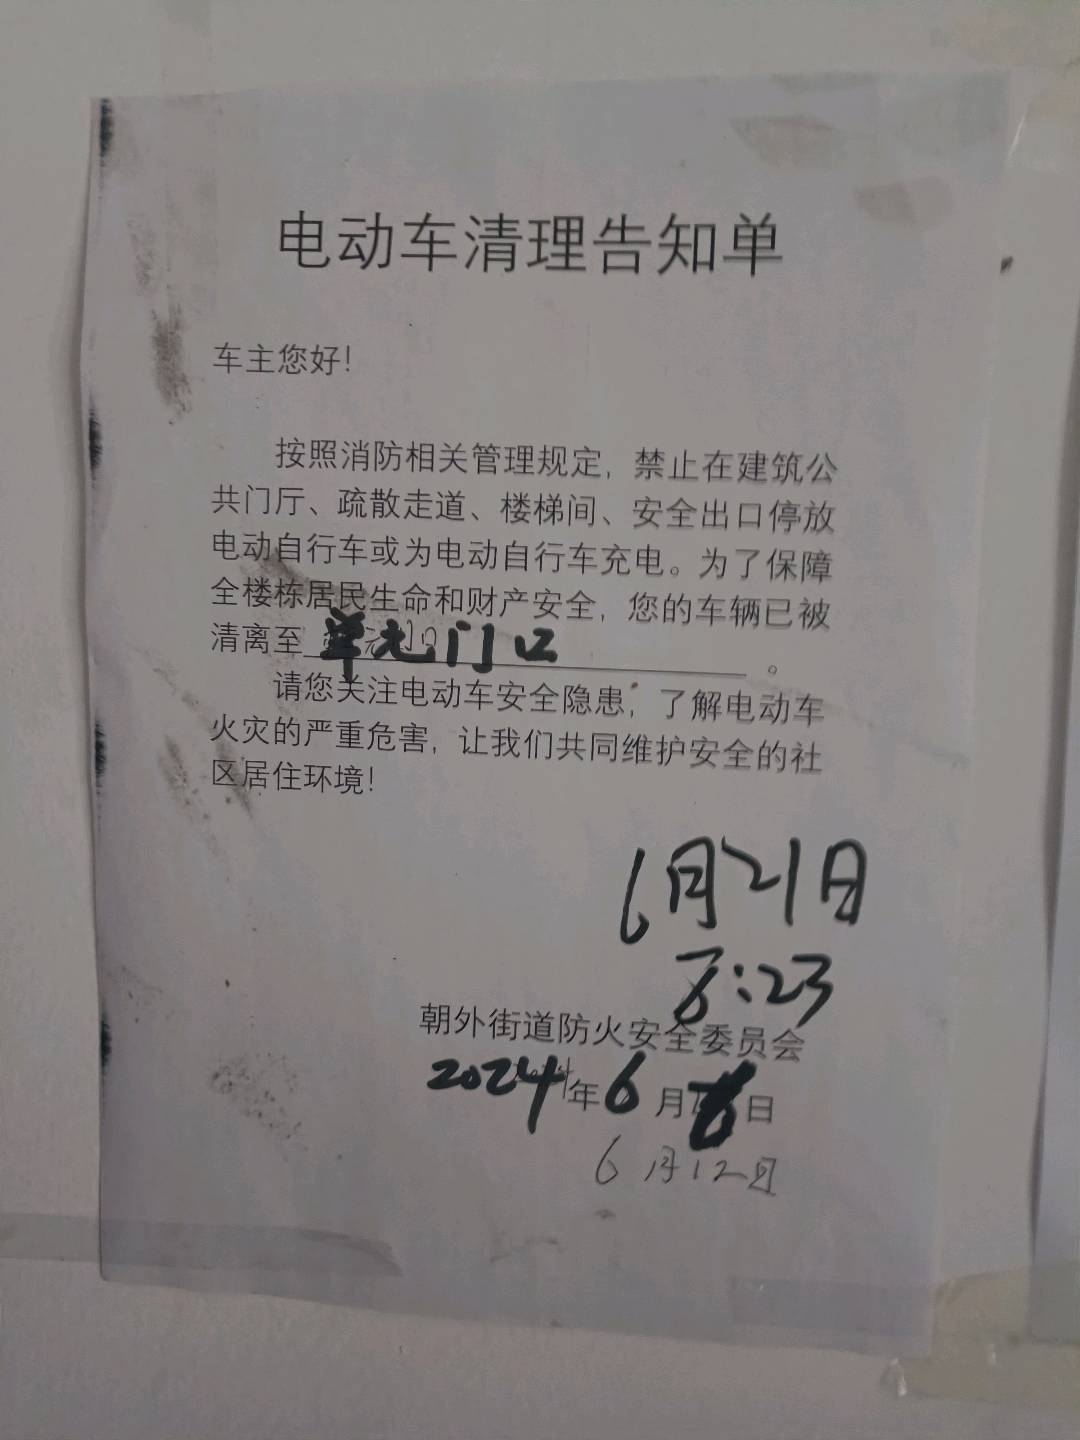 电动车清理告知单
车主您好！
按照消防相关管理规定，禁止在建筑公
共门厅、疏散走道、楼梯间、安全出口停放
电动自行车或为电动自行车充电。为了保障
全楼栋居民生命和财产安全，您的车辆已被
清离至 单元门口 。
请您关注电动车安全隐患，了解电动车
火灾的严重危害，让我们共同维护安全的社
区居住环境！
6月21日
8:23
朝外街道防火安全委员会
2024年6月 日
6月12日